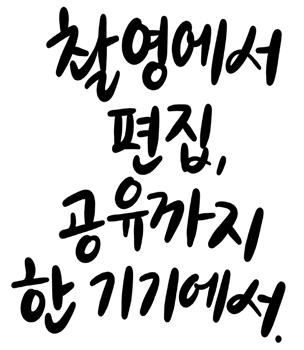 촬영에서
편집,
공유까지
한 기기에서.